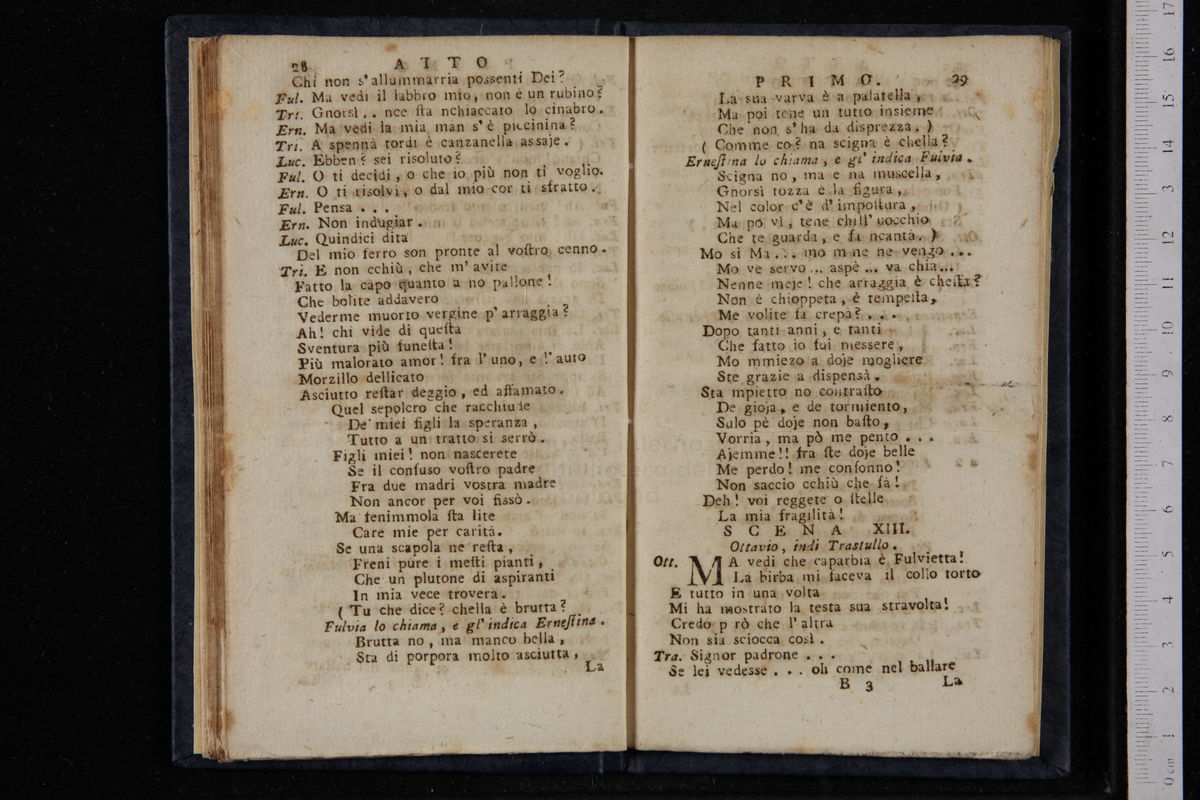 28 ATTO
Chi non s'allummarria possenti Dei?
Ful. Ma vedi il labbro mio, non è un rubino?
Tri. Gnorsì.. nce sta nchiaccato lo cinabro.
Ern. Ma vedi la mia man s'è piccinina?
Tri. A spennà tordi è canzanella assaje.
Luc. Ebben? sei risoluto?
Ful. O ti decidi, o che io più non ti voglio.
Ern. O ti risolvi, o dal mio cor ti sfratto.
Ful. Pensa ...
Ern. Non indugiar.
Luc. Quindici dita
Del mio ferro son pronte al vostro cenno.
Tri. E non cchiù, che m'avite
Fatto la capo quanto a no pallone!
Che bolite addavero
Vederme muorto vergine p'arraggia?
Ah! chi vide di questa
Sventura più funesta!
Più malorato amor! fra l'uno, e l'auto
Morzillo dellicato
Asciutto restar deggio, ed affamato.
Quel sepolcro che racchiude
De' miei figli la speranza,
Tutto a un tratto si serrò.
Figli miei! non nascerete
Se il confuso vostro padre
Fra due madri vostra madre
Non ancor per voi fissò.
Ma fenimmola sta lite
Care mie per carità.
Se una scapola ne resta,
Freni pure i mesti pianti,
Che un plutone di aspiranti
In mia vece troverà.
(Tu che dice? chella è brutta?
Fulvia lo chiama, e gl'indica Ernestina.
Brutta no, ma manco bella,
Sta di porpora molto asciutta,
La
PRIMO. 29
La sua varva è a palatella,
Ma poi tene un tutto insieme
Che non s'ha da disprezza.)
(Comme co? na scigna è chella?
Ernestina lo chiama, e gl'indica Fulvia.
Scigna no, ma è na muscella,
Gnorsì tozza è la figura,
Nel color c'è d'impostura,
Ma po vì, tene chill'uocchio
Che te guarda, e fa ncantà.)
Mo si Ma... mo m ne ne vengo ...
Mo ve servo ... aspè ... va chia...
Nenne meje! che arraggia è chesta?
Non è chioppeta, è tempesta,
Me volite fa crepà? ...
Dopo tanti anni, e tanti
Che fatto io fui messere,
Mo mmiezo a doje mogliere
Ste grazie a dispensà.
Sta mpietto no contrasto
De gioja, e de tormiento,
Sulo pè doje non basto,
Vorria, ma pò me pento ...
Ajemme!! fra ste doje belle
Me perdo! me confonno!
Non saccio cchiù che fà!
Deh! voi reggete o stelle
La mia fragilità!
SCENA XIII.
Ottavio, indi Trastullo.
Ott. MA vedi che caparbia è Fulvietta!
La birba mi faceva il collo torto
E tutto in una volta
Mi ha mostrato la testa sua stravolta!
Credo p rò che l'altra
Non sia sciocca così.
Tra. Signor padrone ...
Se lei vedesse ... oh come nel ballare
B 3 La